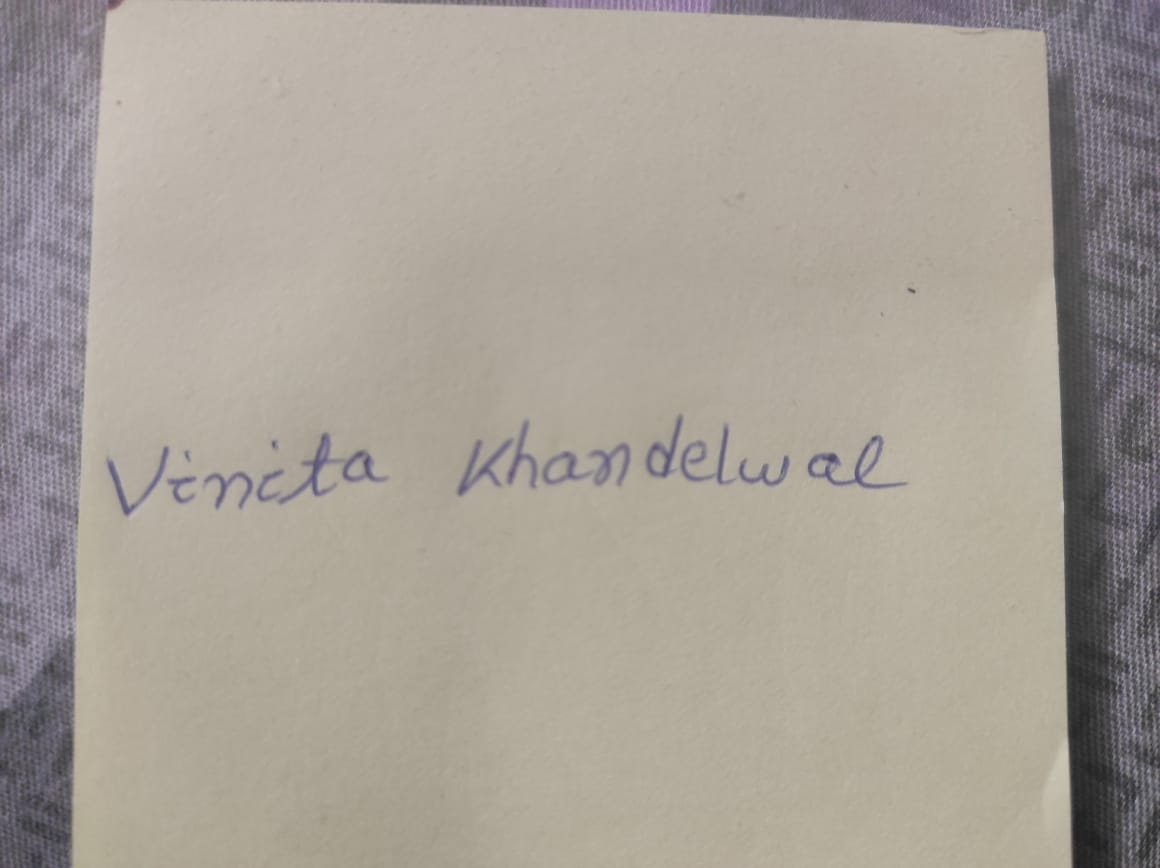 Vinita Khandelwal